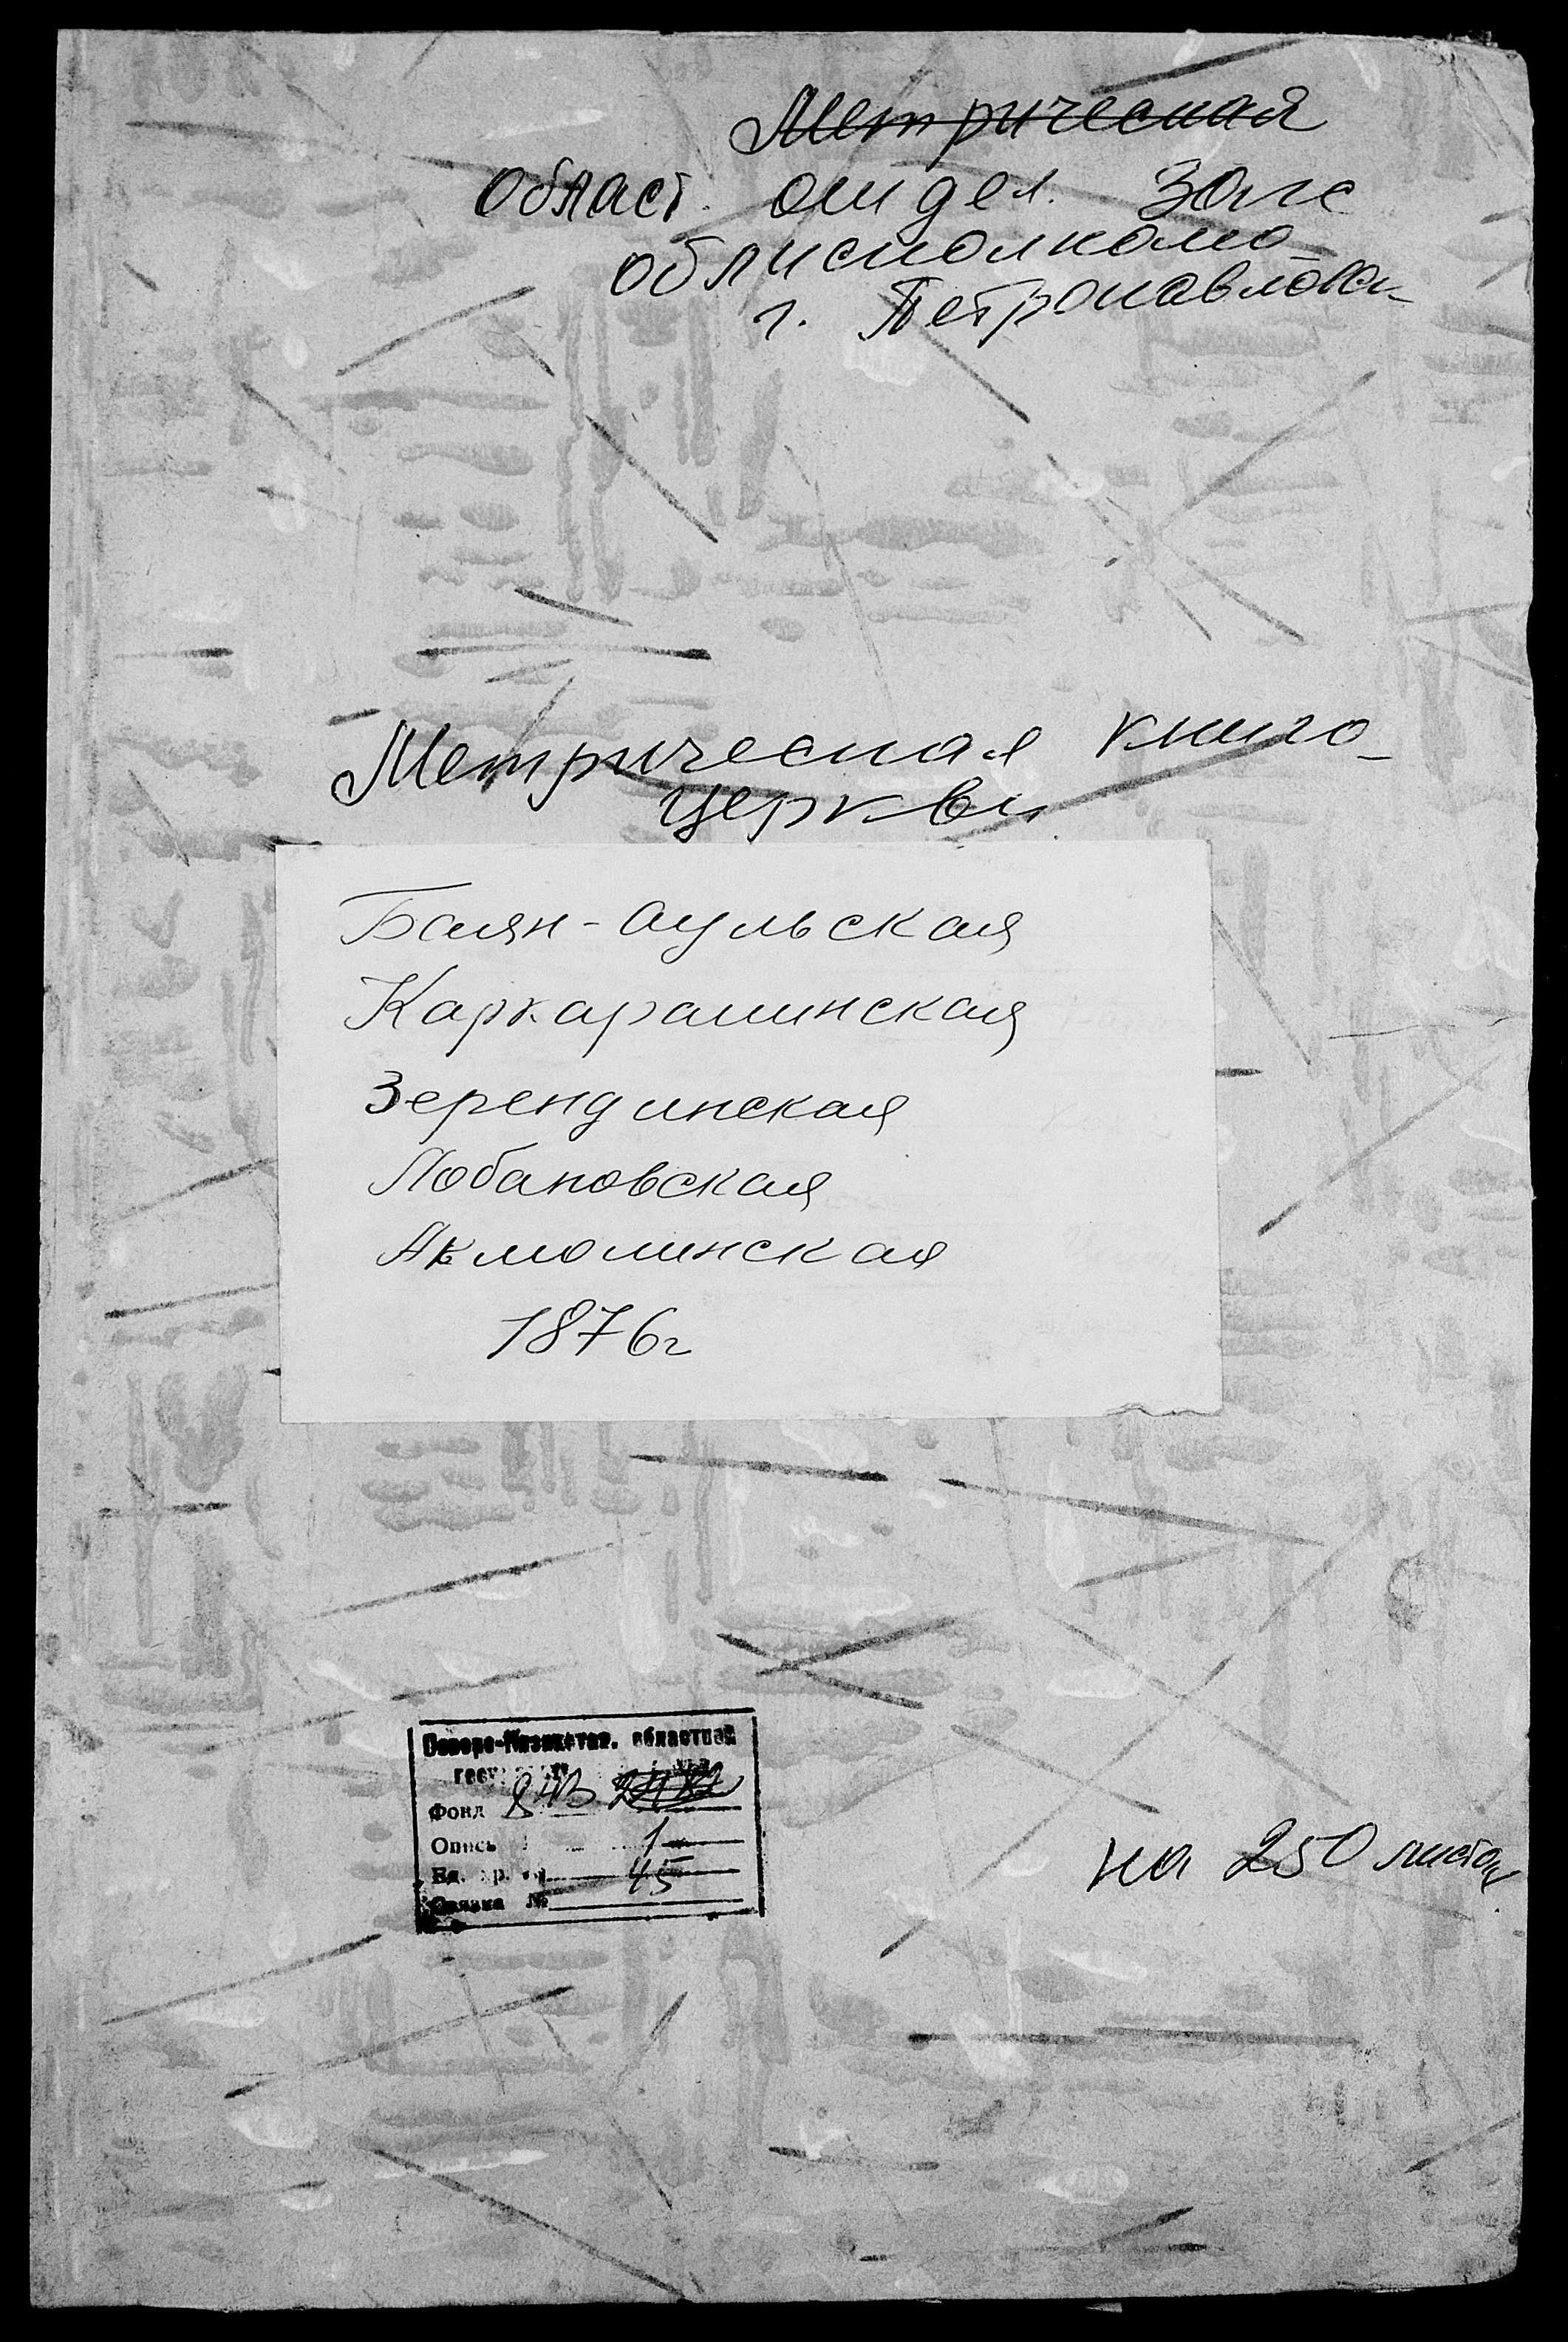 Метрическая
Област. отдел. Загс
облисполкома
г. Петропавловск
Метрическая книга
церкви
Баян-аульская
Каркаралинская
Зерендинская
Лобановская
Акмолинская
1876г
Северо-Казахстан. областной
Фонд 843
Опись 1
Ед. хр. 45
Связка №
на 250 листах